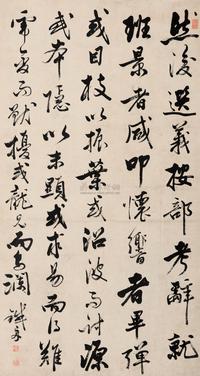 然後選義按部考辭就
班景者咸叩懷響者畢彈
或因枝以振葉或沿波而討源
或本隱以末顯或求易而得難
虎變而獸擾或龍見而鳥瀾